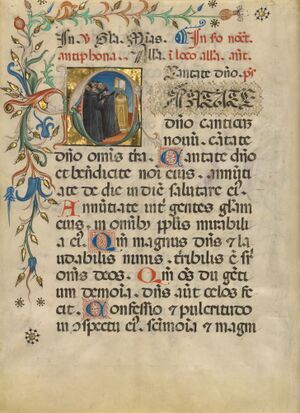 In ỹ Gla. Mias. In iio noct.
antiphona. Alla. ꝑ loco alla. añt.
Cantate dño. ps
CANTATE
dño canticũ
nouũ. cãtate
dño omis tr̃a. Cantate dño
et benedicite noi̇ eius. añnũti
ate de die in diẽ salutare eĩ.
Annũtiate int̃ gentes gl̃am
eius. in omnibꝫ ppl̃is mirabili
a eĩ. Qm̃ magnus dñs & lau
dabilis nimis. tr̃ibilis ẽ sr̃
om̃s deos. Qm̃ oẽs dij gẽtiũ
demoĩa. dñs aũt celos fe
cit. Confessio & pulcritudo
in ↄspectu eĩ. sc̃imoĩa & magni